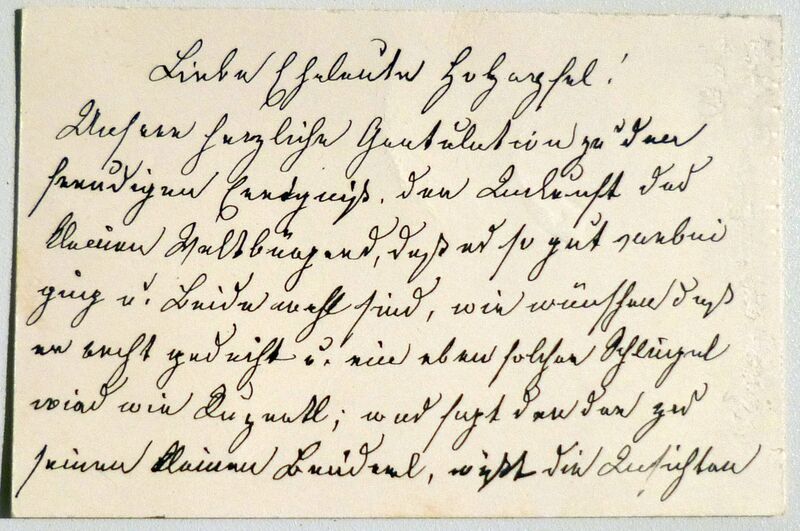 Liebe Eheleute Holzapfel!
Unsere herzliche Gratulation zu dem
freudigen Ereigniß, der Ankunft des
kleinen Weltbürgers, daß es so gut vorbei
ging u. Beide wohl sind, wir wünschen daß
er recht gedeiht u. ein eben solcher Schlingel
wird wie; was sagt denn der zu
seinem kleinen Brüderl, die Ansichten